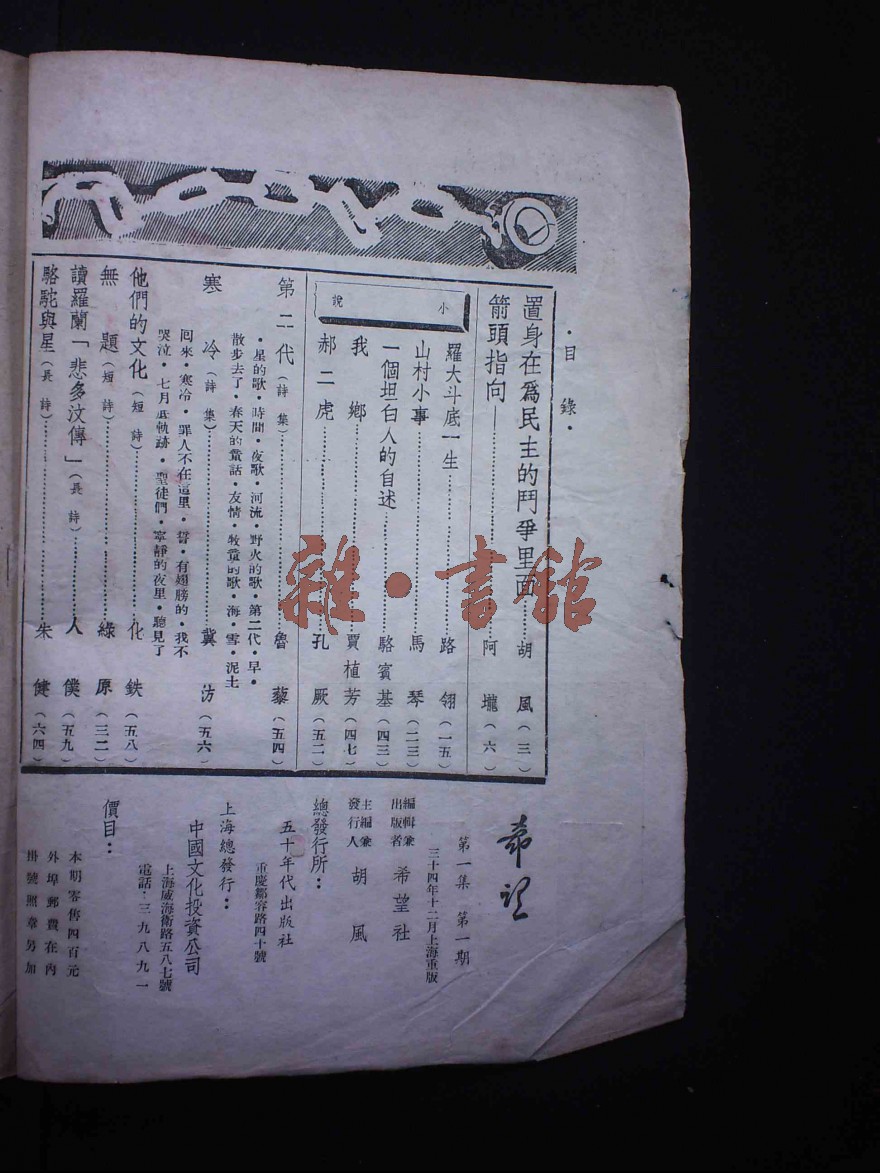 ·目錄·
置身在爲民主的鬥爭里面……胡風(三)
箭頭指向——……阿壠(六)
小說
羅大斗底一生……路翎(一五)
山村小事……馬琴(二三)
一個坦白人的自述……駱賓基(四三)
我鄉……賈植芳(四七)
郝二虎……孔厥(五二)
第二代(詩集)……魯藜(五四)
·星的歌·時間·夜歌·河流·野火的歌·第二代·早·
散步去了·春天的童話·友情·牧童的歌·海·雪·泥土
寒冷(詩集)……冀汸(五六)
回來·寒冷·罪人不在這里·誓·有翅膀的·我不
哭泣·七月底軌跡·聖徒們·寧靜的夜里·聽見了
他們的文化(短詩)……化鉄(五八)
無題(短詩)……綠原(三二)
讀羅蘭「悲多汶傳」(長詩)……人僕(五九)
駱駝與星(長詩)……朱健(六四)
希望
第一集 第一期
三十四年十二月上海重版
編輯兼出版者 希望社
主編兼發行人 胡風
總發行所：
五十年代出版社
重慶鄒容路四十號
上海總發行：
中國文化投資公司
上海威海衛路五八七號
電話：三九八九一
價目：
本期零售四百元
外埠郵費在內
掛號照章另加
雜·書館